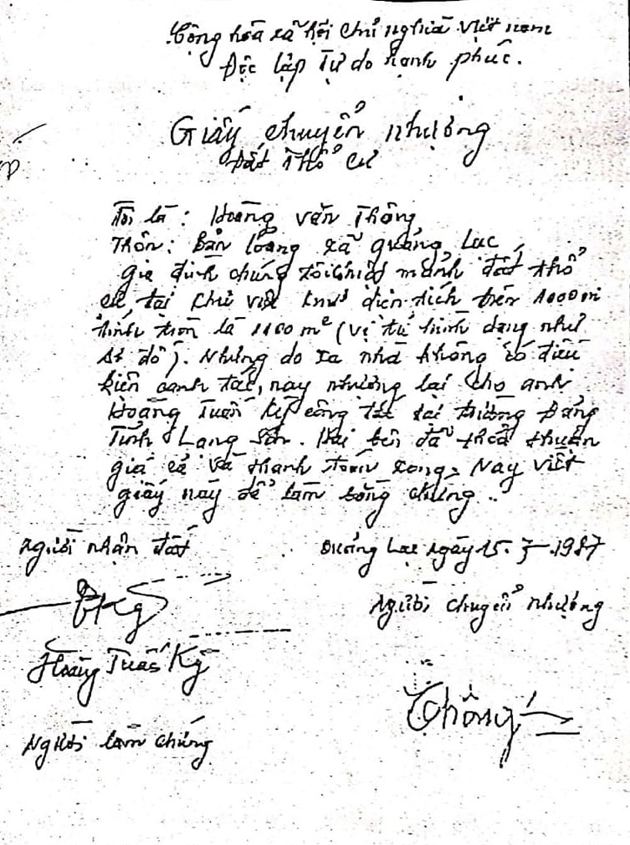 Cộng hòa xã hội chủ nghĩa việt nam
Độc lập Tự do hạnh phúc.
Giấy chuyển nhượng
Đất thổ cư
Tôi là: Hoàng văn Thông
Thôn: Bản Loỏng xã quảng Lạc
gia đình chúng tôi có mảnh đất thổ
cư tại khu vực diện tích trên 1000 m
hình tròn là 1100 m² (vị trí hình dạng như
sơ đồ). Nhưng do xa nhà không có điều
kiện canh tác, nay nhượng lại cho anh
Hoàng Tuấn Kỳ công tác tại trường Đảng
Tỉnh Lạng Sơn. Hai bên đã thoả thuận
giá cả và thanh toán xong. Nay viết
giấy này để làm bằng chứng..
Người nhận đất
Quảng Lạc ngày 15. 1987
Người chuyển nhượng
Hoàng Tuấn Kỳ
Thông
Người làm chứng